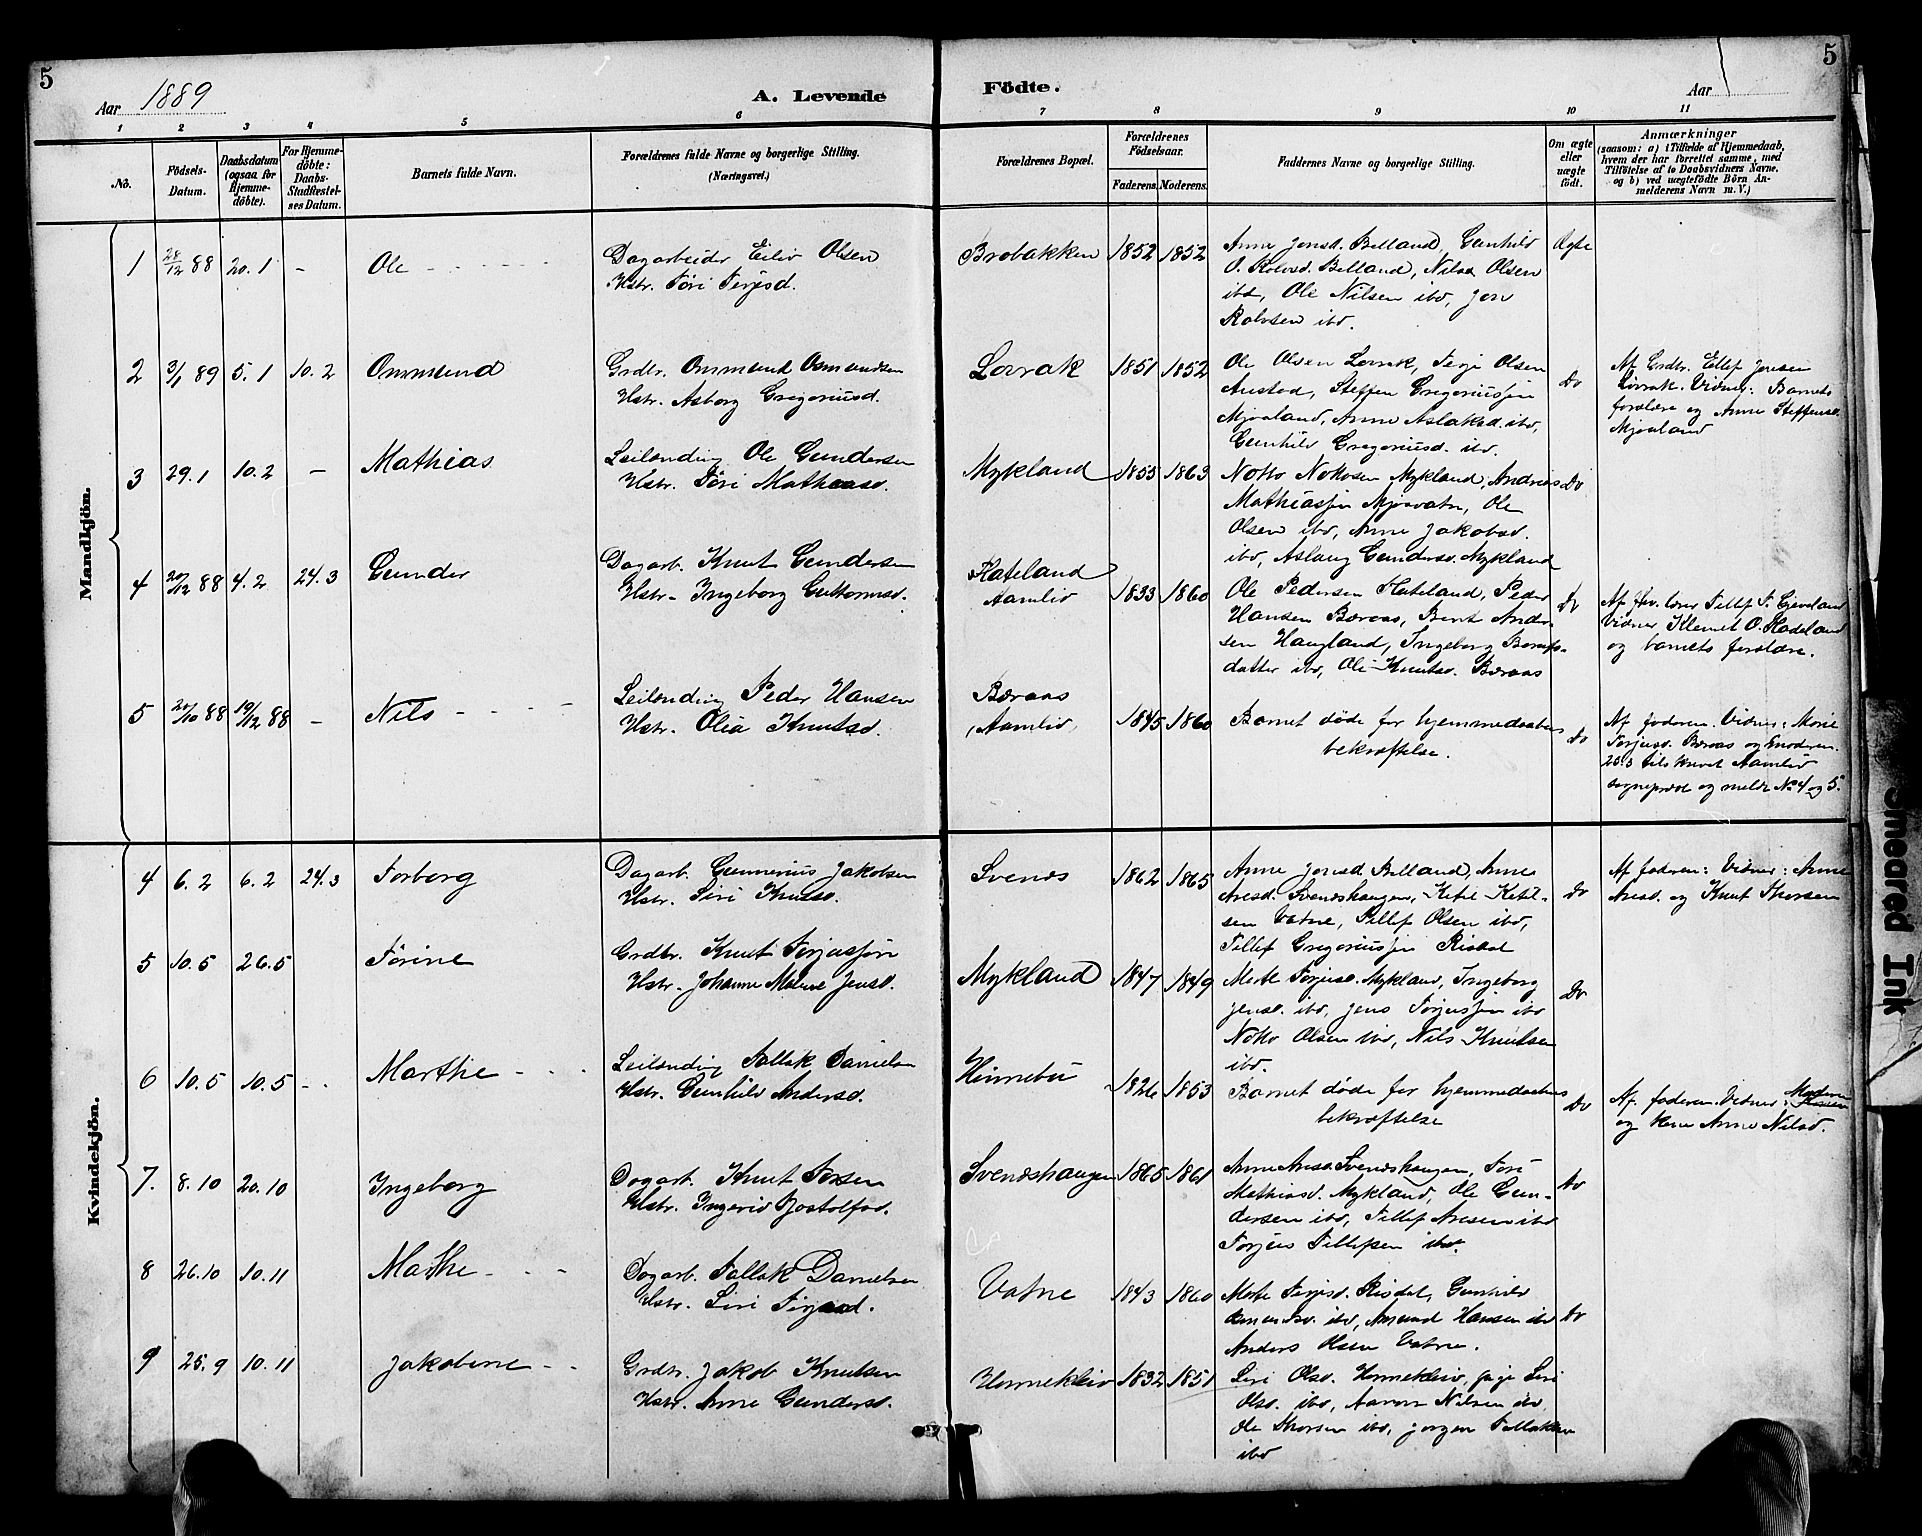 5
5
Aar 1889
A. Levende Födte.
Aar
1 2 3 4 5 6 7 8 9 10 11
No.
Födsels-Datum.
Daabsdatum (ogsaa for Hjemmedöbte).
For Hjemmedöbte: Daabs-Stadfæstelses Datum.
Barnets fulde Navn.
Forældrenes fulde Navne og borgerlige Stilling.
(Næringsvei.)
Forældrenes Bopæl.
Forældrenes Födselsaar.
Faderens. Moderens.
Faddernes Navne og borgerlige Stilling.
Om ægte eller uægte födt.
Anmærkninger
(saasom: a) i Tilfælde af Hjemmedaab,
hvem der har forrettet samme, med
Tilföielse af to Daabsvidners Navne.
og b) ved uægtefödte Börn An-
melderens Navn m. V.)
Mandkjön.
1 28/12 88 20.1 - Ole
Dagarbeider Eiliv Olsen
Hstr. Töri Terjesd.
Brobakken 1852 1852
Anne Jensd. Belland, Gunhild
O. Rolvsd. Belland, Nils Olsen
ibd, Ole Nilsen ibd, Jen
Rolvsen ibd.
Ægte
2 3/1 89 5.1 10.2 Ommund
Grdbr. Ommund Osmundsen
Hstr. Asborg Gregoriusd.
Lovrak 1851 1852
Ole Olsen Lovrak, Terje Olsen
Austad, Steffen Gregoriussen
Mjaaland, Anne Aslaksd. ibd,
Gunhild Gregoriusd. ibd.
Do
Af Grdbr. Ellef Jensen
Lovrak. Vidner: Barnets
forældre og Anne Steffensd.
Mjaaland
3 29.1 10.2 - Mathias
Leilending Ole Gundersen
Hstr. Töri Mathiasd.
Mykland 1855 1863
Notto Nottosen Mykland, Andreas
Mathiassen Mjaavatn, Ole
Olsen ibd, Anne Jakobsd.
ibd, Aslaug Gundersd. Mykland
Do
4 20/12 88 4.2 24.3 Gunder
Dagarb. Knut Gundersen
Hstr. Ingeborg Guttormsd.
Hateland
Aamlid 1833 1860
Ole Pedersen Hateland, Peder
Hansen Baraas, Berit Ander-
sen Haugland, Ingeborg
datter ibd, Ole Knutsd. Baraas
Do
Af fhv. lærer Tellef T. Gjeveland
Vidner Klemet O. Hadeland
og barnets forældre.
5 88 19/12 88 - Nils
Leilending Peder Hansen
Hstr. Olea Knutsd.
Baraas
(Aamlid) 1845 1860
Barnet döde for hjemmedaabens
bekræftelse.
Do
Af faderen. Vidner: Marie
Terjusd. Baraas og moderen.
25.3 tilskrevet Aamlids
sogneprest og meldt No 4 og 5.
Kvindekjön.
4 6.2 6.2 24.3 Torborg
Dagarb. Gunnerius Jakobsen
Hstr. Siri Knutsd.
Svends 1862 1865
Anne Jensd. Belland, Anne
Aresd. Svendshaugen, Ketil Ketil-
sen Vatne, Tellef Olsen ibd,
Tellef Gregoriussen Risdal
Do
Af faderen: Vidner: Anne
Aresd. og Knut Thorsen
5 10.5 26.5 Törine
Grdbr. Knut Terjussen
Hstr. Johanne Malene Jensd.
Mykland 1847 1849
Merte Terjusd. Mykland, Ingeborg
Jensd. ibd, Jens Terjussen ibd
Notto Olsen ibd, Nils Knutsen
ibd.
Do
6 10.5 10.5 - Marthe
Leilending Tallak Danielsen
Hstr. Gunhild Andersd.
Hinnebu 1826 1853
Barnet döde for hjemmedaabens
bekræftelse
Do
Af faderen. Vidner: Moderen
og kone Anne Nilsd.
7. 8.10 20.10 Ingeborg
Dagarb. Knut Torsen
Hstr. Ingerid Tjostolfsd.
Svendshaugen 1865 1861
Anne Aresd. Svendshaugen, Töri
Mathiasd. Mykland, Ole Gun-
dersen ibd, Tellef Aresen ibd
Terjus Tellefsen ibd.
Do
8 26.10 10.11 Mathe
Dagarb. Tallak Danielsen
Hstr. Siri
Vatne 1843 1860
Merte Terjesd. Risdal, Gunhild
ibd, Amund Hansen ibd
Anders Olsen Vatne.
Do
9 25.9 10.11 Jakobine
Grdbr. Jakob Knutsen
Hstr. Anne Gundersd.
Hinneklev 1832 1851
Siri Olsd. Hinneklev, pige Siri
Olsd. ibd, Aaron Nilsen ibd
Ole Thorsen ibd, Jorgen Tellaksen
ibd
Smeared Ink